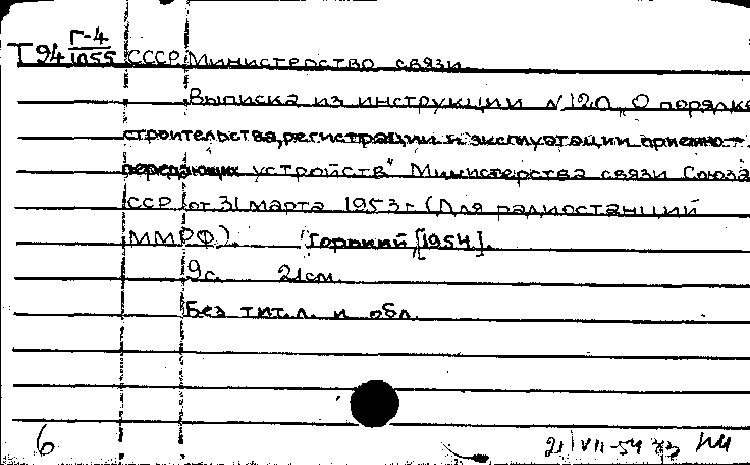 Г-4
Т 94 1055 СССР. Министерство связи.
Выписка из инструкции N 120 „О порядке
строительства, регистрации и эксплуатации приемно-
передающих устройств" Министерства связи Союза
ССР от 31 марта 1953 г (Для радиостанций
ММРФ). Горький, [1954].
9с. 21см.
Без тит.л. и обл.
6 21/VII-54